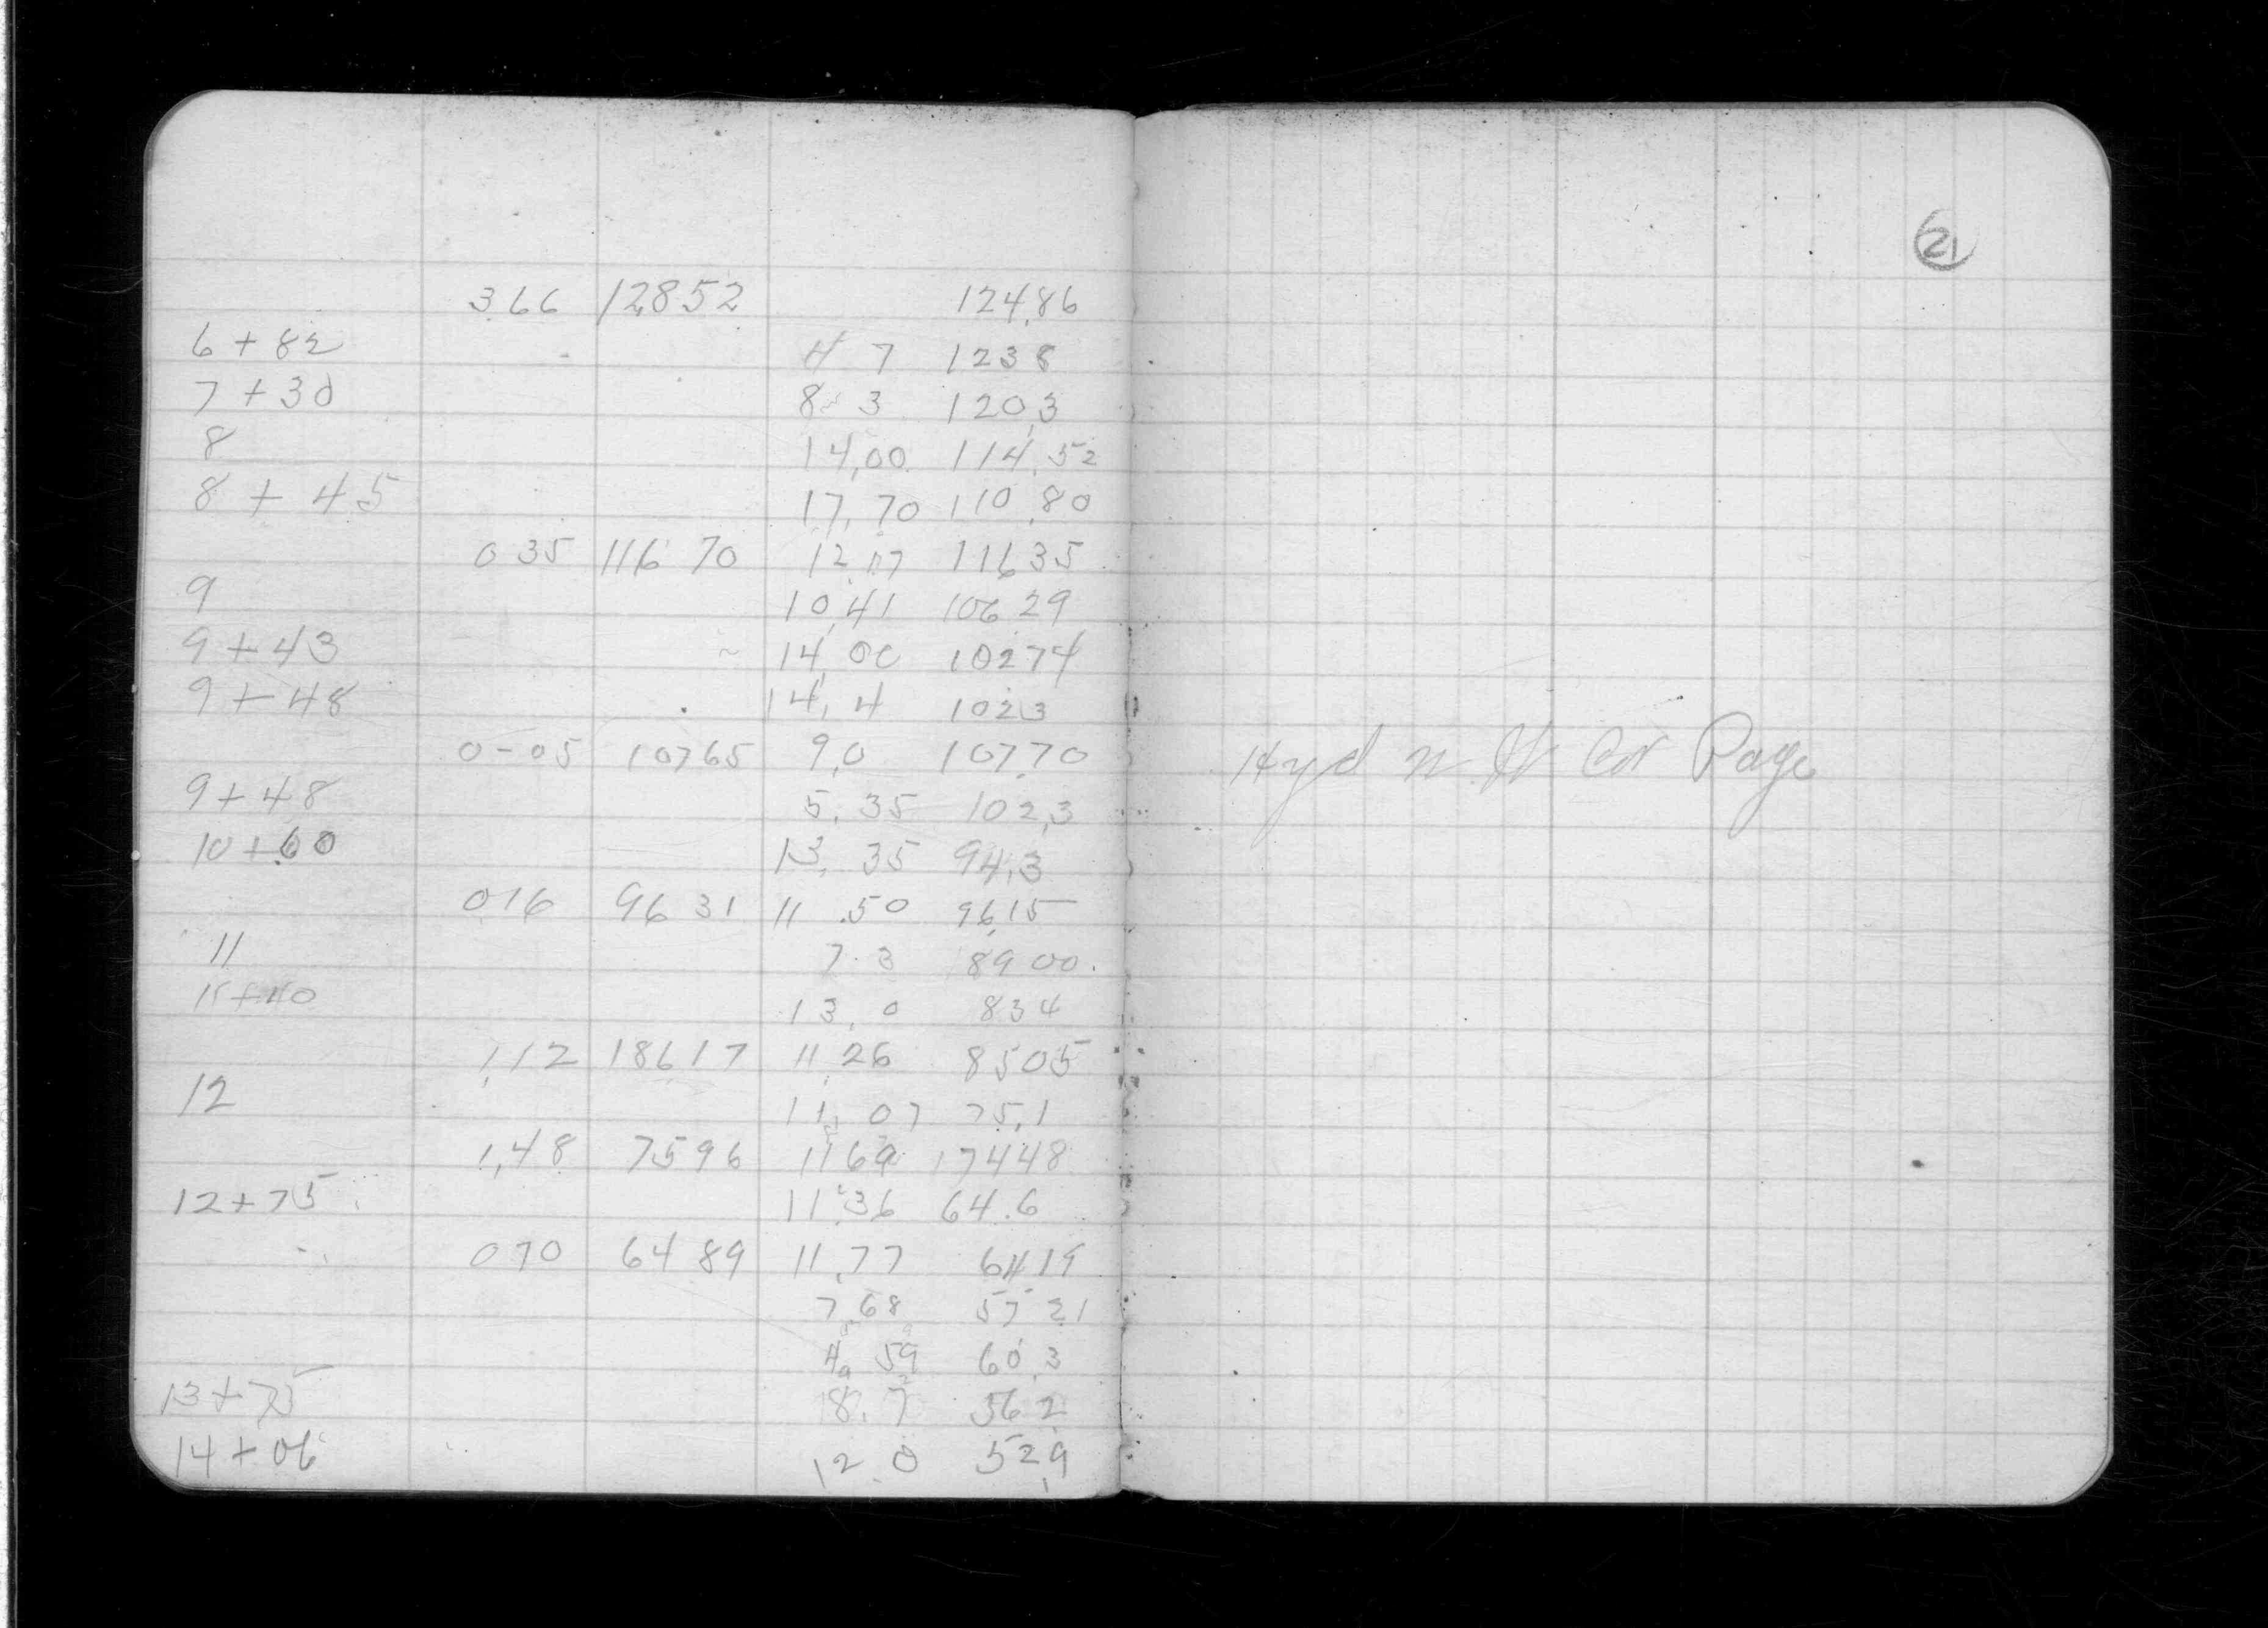 21
3.66 128.52 124.86
6 + 82 4 7 123 8
7 + 30 8 3 120.3
8 14.00 114.52
8 + 45 17.70 110.80
0 35 116 70 12.17 116 35
9 10.41 106 29
9 + 43 14.00 102 74
9 + 48 14.4 102 3
0-05 107 65 9.0 107.70
9 + 48 5.35 102.3
10 + 60 13.35 94.3
0 16 96 31 11.50 96.15
11 7.3 89 00
11+40 13.0 83 4
1.12 186.17 11.26 85 05
12 11.07 75.1
1.48 75 96 1169 174 48
12+75 11.36 64.6
0 70 64 89 11.77 64 19
7.68 57 21
4.59 60.3
13+75 8.7 56 2
14+06 12.0 52.9
Hyd n. W Cor Page